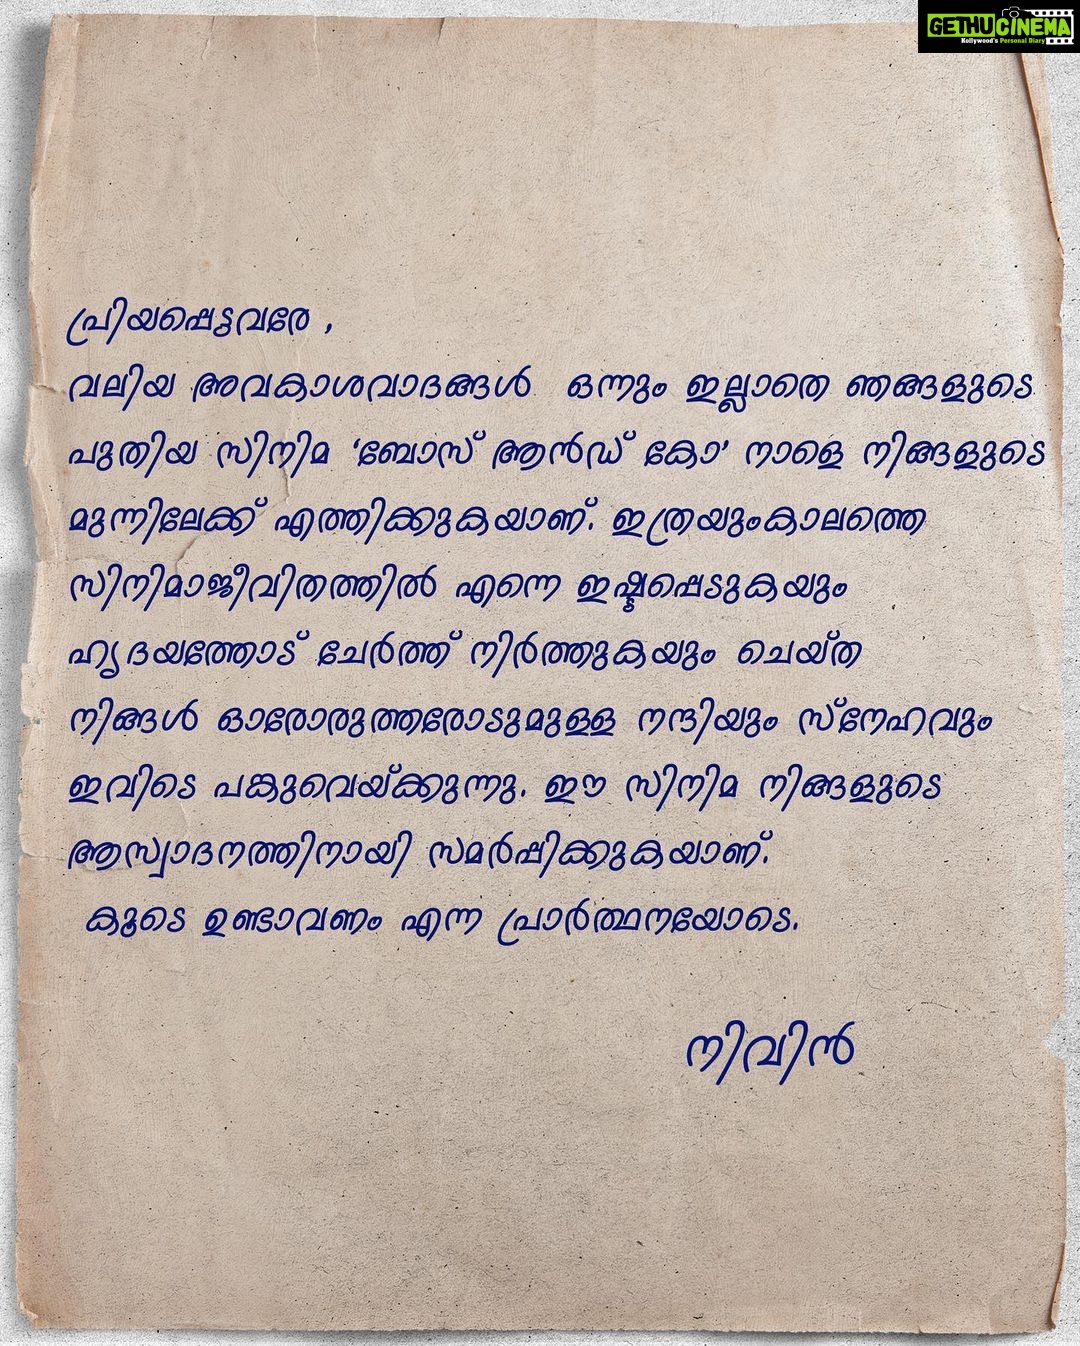 GETHUCINEMA
Kollywood's Personal Diary
പ്രിയപ്പെട്ടവരേ ,
വലിയ അവകാശവാദങ്ങൾ ഒന്നും ഇല്ലാതെ ഞങ്ങളുടെ
പുതിയ സിനിമ ‘ബോസ് ആൻഡ് കോ’ നാളെ നിങ്ങളുടെ
മുന്നിലേക്ക് എത്തിക്കുകയാണ്. ഇത്രയുംകാലത്തെ
സിനിമാജീവിതത്തിൽ എന്നെ ഇഷ്ടപ്പെടുകയും
ഹൃദയത്തോട് ചേർത്ത് നിർത്തുകയും ചെയ്ത
നിങ്ങൾ ഓരോരുത്തരോടുമുള്ള നന്ദിയും സ്നേഹവും
ഇവിടെ പങ്കുവെയ്ക്കുന്നു. ഈ സിനിമ നിങ്ങളുടെ
ആസ്വാദനത്തിനായി സമർപ്പിക്കുകയാണ്.
കൂടെ ഉണ്ടാവണം എന്ന പ്രാർത്ഥനയോടെ.
നിവിൻ